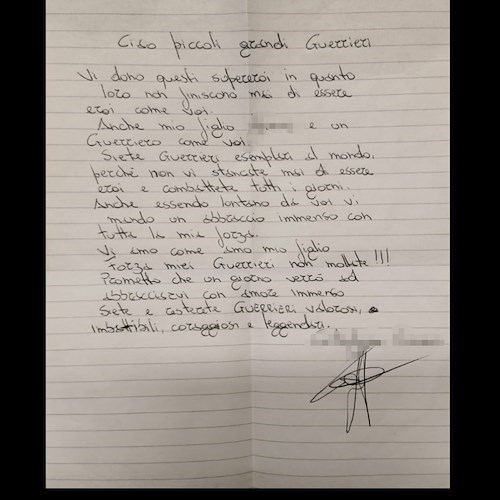 Ciao piccoli grandi Guerrieri
Vi dono questi supereroi in quanto
loro non finiscono mai di essere
eroi come voi.
Anche mio figlio e un
Guerriero come voi.
Siete Guerrieri esemplari al mondo,
perché non vi stancate mai di essere
eroi e combattete tutti i giorni.
Anche essendo lontano da voi vi
mando un abbraccio immenso con
tutta la mia forza.
Vi amo come amo mio figlio
Forza miei Guerrieri non mollate!!!
Prometto che un giorno verrò ad
abbracciarvi con amore immenso
Siete e resterete GUERRIERI valorosi,
imbattibili, coraggiosi e leggendari.